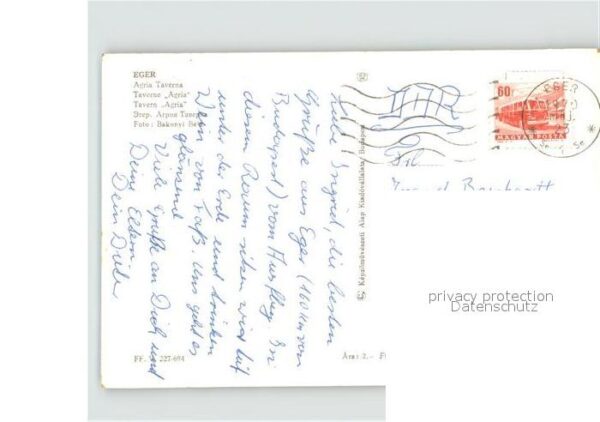 EGER
Agria Taverna
Taverne „Agria"
Tavern „Agria"
Эгер.
Foto: Bakonyi
Liebe Ingrid, die besten
Grüße aus Eger (160 km von
Budapest) vom Ausflug. In
diesem Raum sitzen wir tief
unter der Erde und trinken
Wein vom Faß. Uns geht es
glänzend
Viele Grüße an Dich und
Deine Eltern
Dein Dieter
FF. 227-694
Képzőművészeti Alap Kiadóvállalata, Budapest
Ára: 2.–
DDR
60f
MAGYAR POSTA
EGER
privacy protection
Datenschutz